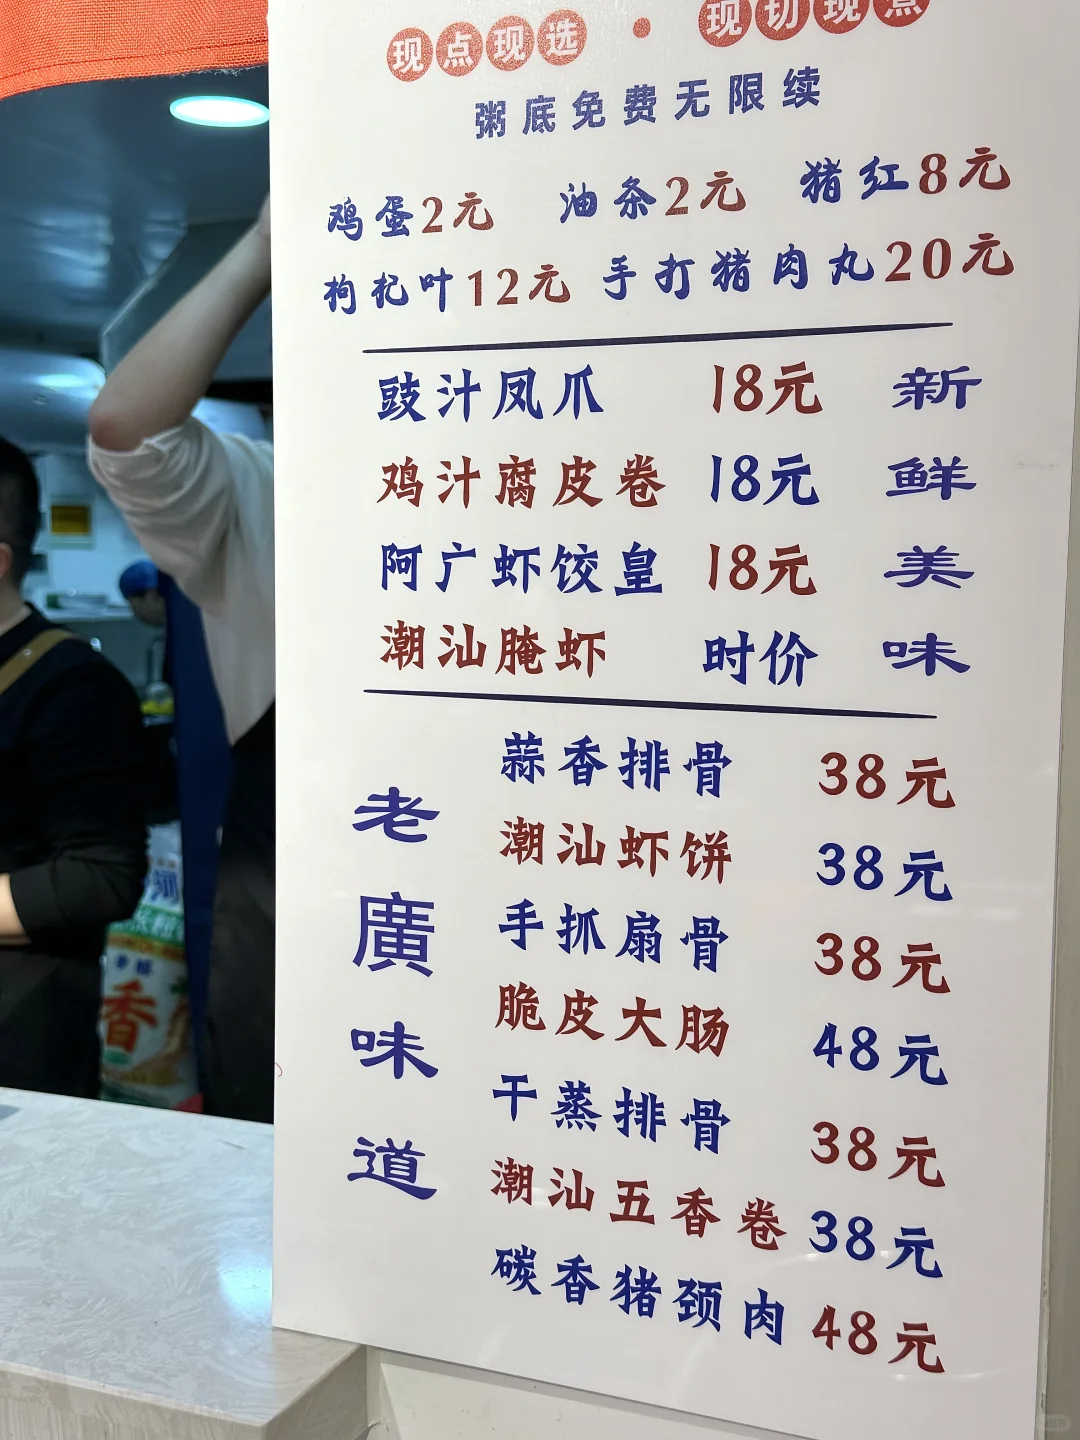 现点现选 · 现切现煮
粥底免费无限续
鸡蛋2元 油条2元 猪红8元
枸杞叶12元 手打猪肉丸20元
豉汁凤爪 18元
鸡汁腐皮卷 18元
阿广虾饺皇 18元
潮汕腌虾 时价
新鲜美味
老廣味道
蒜香排骨 38元
潮汕虾饼 38元
手抓扇骨 38元
脆皮大肠 48元
干蒸排骨 38元
潮汕五香卷 38元
碳香猪颈肉 48元
香